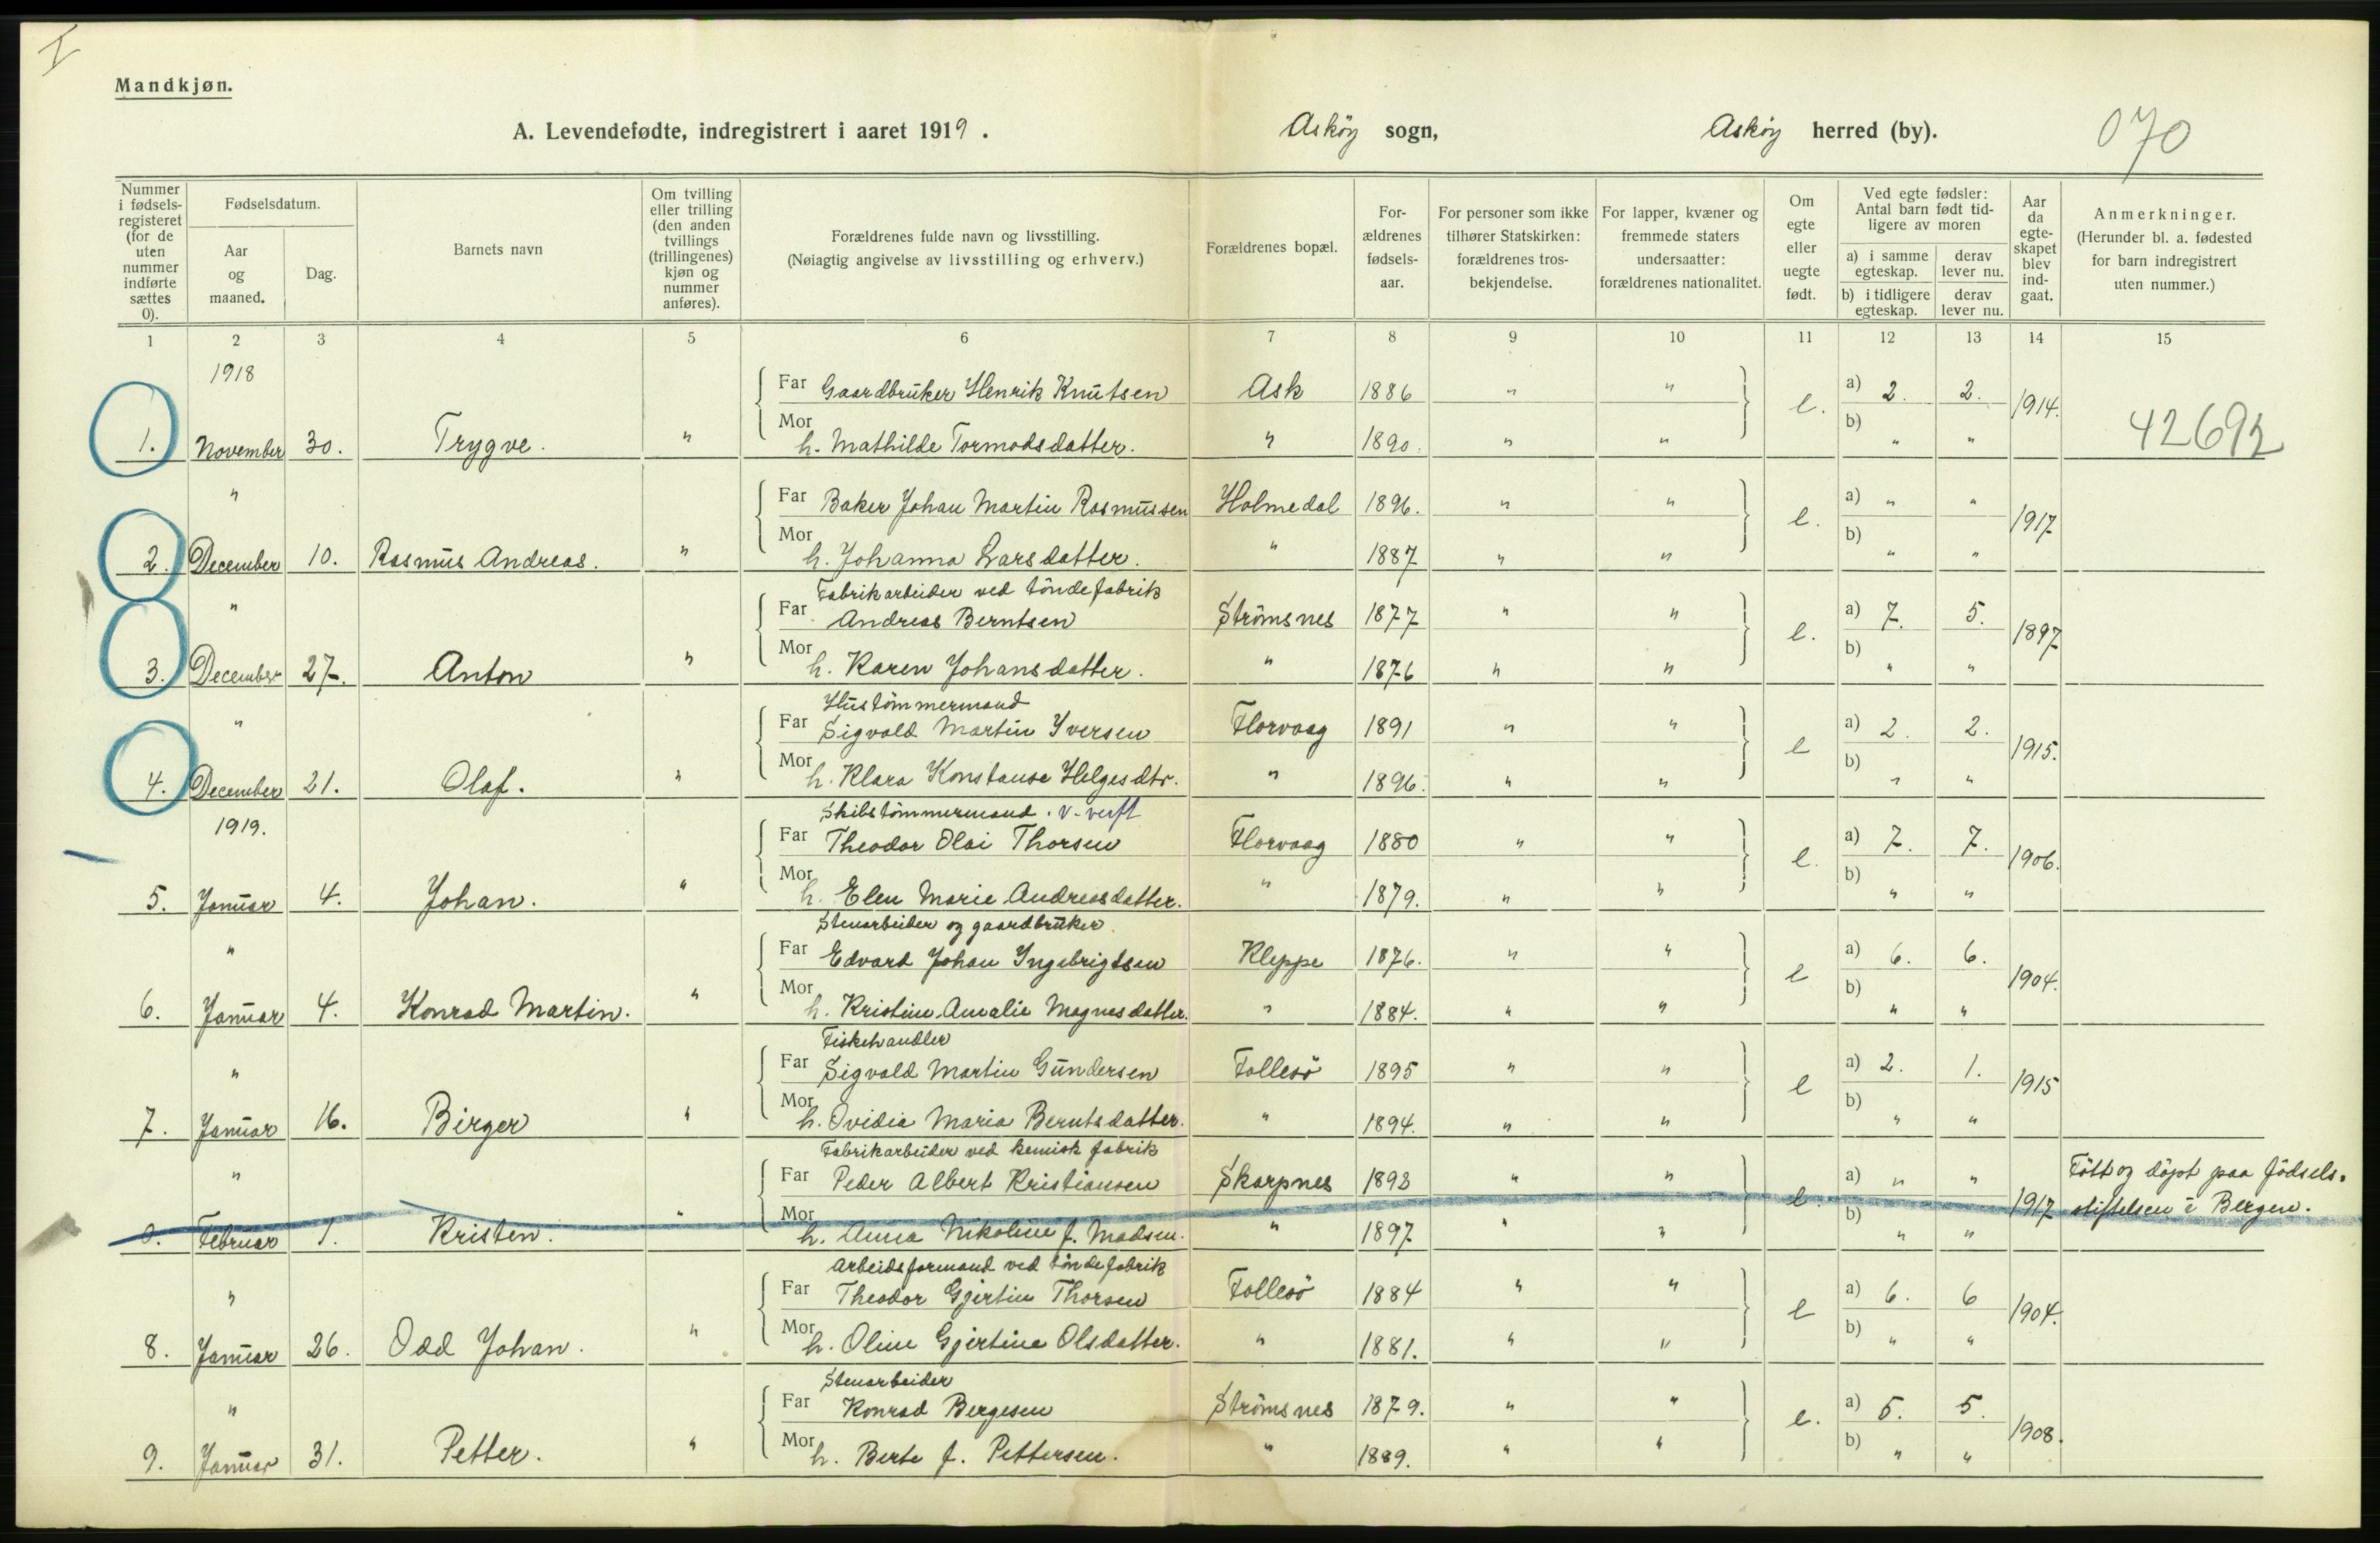 I
Mandkjøn.
A. Levendefødte, indregistrert i aaret 1919. Askøy sogn, Askøy herred (by). 070
Nummer i fødsels-registeret (for de uten nummer indførte sættes 0). Fødselsdatum. Aar og maaned. Dag. Barnets navn Om tvilling eller trilling (den anden tvillings (trillingenes) kjøn og nummer anføres). Forældrenes fulde navn og livsstilling. (Nøiagtig angivelse av livsstilling og erhverv.) Forældrenes bopæl. For-ældrenes fødsels-aar. For personer som ikke tilhører Statskirken: forældrenes tros-bekjendelse. For lapper, kvæner og fremmede staters undersaatter: forældrenes nationalitet. Om egte eller uegte født. Ved egte fødsler: Antal barn født tid-ligere av moren a) i samme egteskap. derav lever nu. b) i tidligere egteskap. derav lever nu. Aar da egte-skapet blev ind-gaat. Anmerkninger. (Herunder bl. a. fødested for barn indregistrert uten nummer.)
1 2 3 4 5 6 7 8 9 10 11 12 13 14 15
1918
Far Gaardbruker Henrik Knutsen Ask 1886 " " e. a) 2. 2. 1914.
1. November 30. Trygve. " Mor h. Mathilde Tormodsdatter. " 1890. " " b) " " 42692
" Far Baker Johan Martin Rasmussen Holmedal 1896. " " e. a) " " 1917
2. December 10. Rasmus Andreas. " Mor h. Johanna Larsdatter. " 1887 " " b) " "
Fabrikarbeider ved tøndefabrik
" Far Andreas Berntsen Strømsnes 1877 " " e. a) 7. 5. 1897
3. December 27. Anton " Mor h. Karen Johansdatter. " 1876 " " b) " "
Hustømmermand
" Far Sigvald Martin Iversen Florvaag 1891 " " e a) 2. 2. 1915.
4. December 21. Olaf. " Mor h. Klara Konstanse Helgesdtr. " 1896. " " b) " "
1919. Skibstømmermand. v. verft
Far Theodor Olai Thorsen Florvaag 1880 " " e. a) 7. 7. 1906.
5. Januar 4. Johan. " Mor h. Elen Marie Andreasdatter. " 1879. " " b) " "
Stenarbeider og gaardbruker.
" Far Edvard Johan Ingebrigtsen Kleppe 1876. " " e a) 6. 6. 1904.
6. Januar 4. Konrad Martin. " Mor h. Kristine Amalie Magnesdatter. " 1884. " " b) " "
Fiskehandler
" Far Sigvald Martin Gundersen Follesö 1895 " " e a) 2. 1. 1915
7. Januar 16. Birger " Mor h. Ovidia Maria Berntsdatter. " 1894. " " b) " "
Fabrikarbeider ved kemisk fabrik
" Far Peder Albert Kristiansen Skarpnes 1893 " " e. a) " " 1917 Født og døpt paa fødsels-
0. Februar 1. Kristen. " Mor h. Anna Nikoline f. Madsen. " 1897 " " b) " " stiftelsen i Bergen.
Arbeidsformand ved tøndefabrik
" Far Theodor Gjertin Thorsen Follesö 1884 " " e a) 6. 6 1904.
8. Januar 26. Odd Johan. " Mor h. Oline Gjertine Olsdatter. " 1881. " " b) " "
Stenarbeider
" Far Konrad Bergesen Strømsnes 1879. " " e. a) 5. 5. 1908.
9. Januar 31. Petter. " Mor h. Berte f. Pettersen. " 1889. " " b) " "